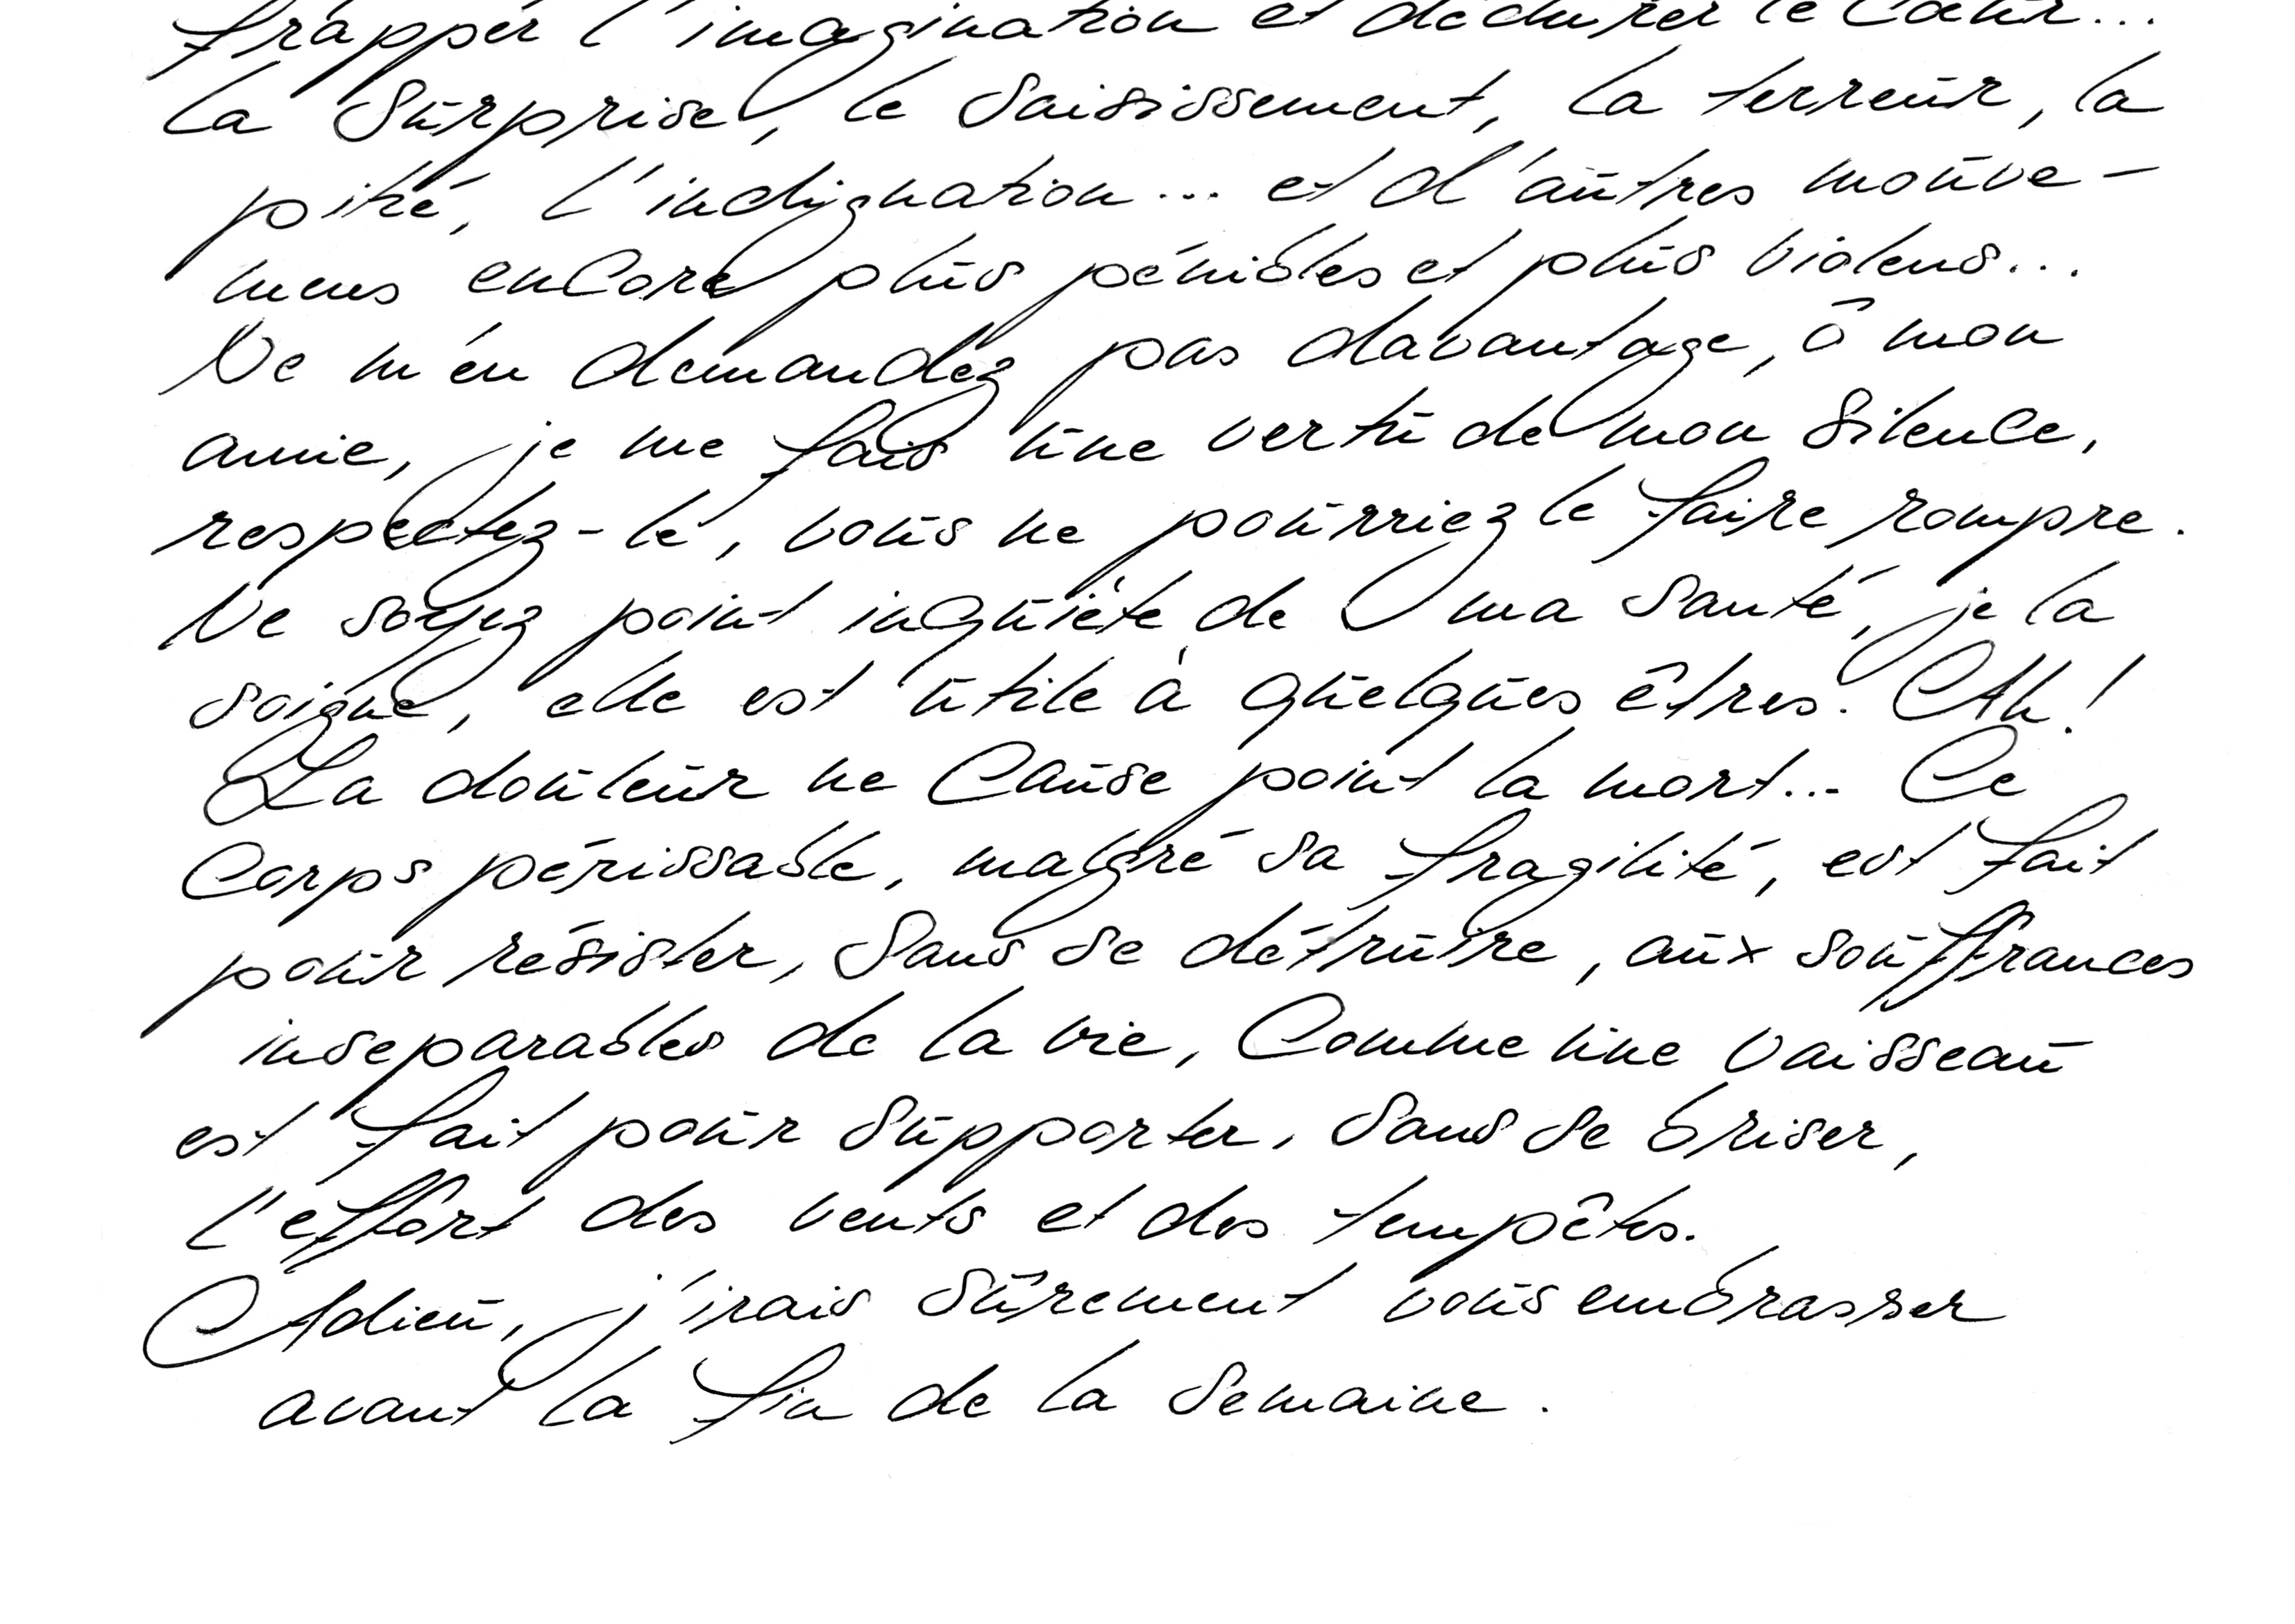 frapper l'imagination et déchirer le Cœur...
la Surprise, le Saisissement, la terreur, la
pitié, l'indignation... et d'autres mouve-
mens encore plus pénibles et plus violens...
Ne m'en demandez pas davantage, ô mon
amie, je me fais une vertu de mon Silence,
respectez-le, vous ne pourriez le faire rompre.
Ne soyez point inquiète de ma Santé, je la
soigne, elle est utile à quelques êtres. Ah!
La douleur ne Cause point la mort... Ce
Corps périssable, malgré sa fragilité, est fait
pour résister, Sans se détruire, aux souffrances
inséparables de la vie, Comme une vaisseau
est fait pour Supporter, Sans se briser,
l'effort des vents et des tempêtes.
Adieu, j'irais Sûrement vous embrasser
avant la fin de la Semaine.